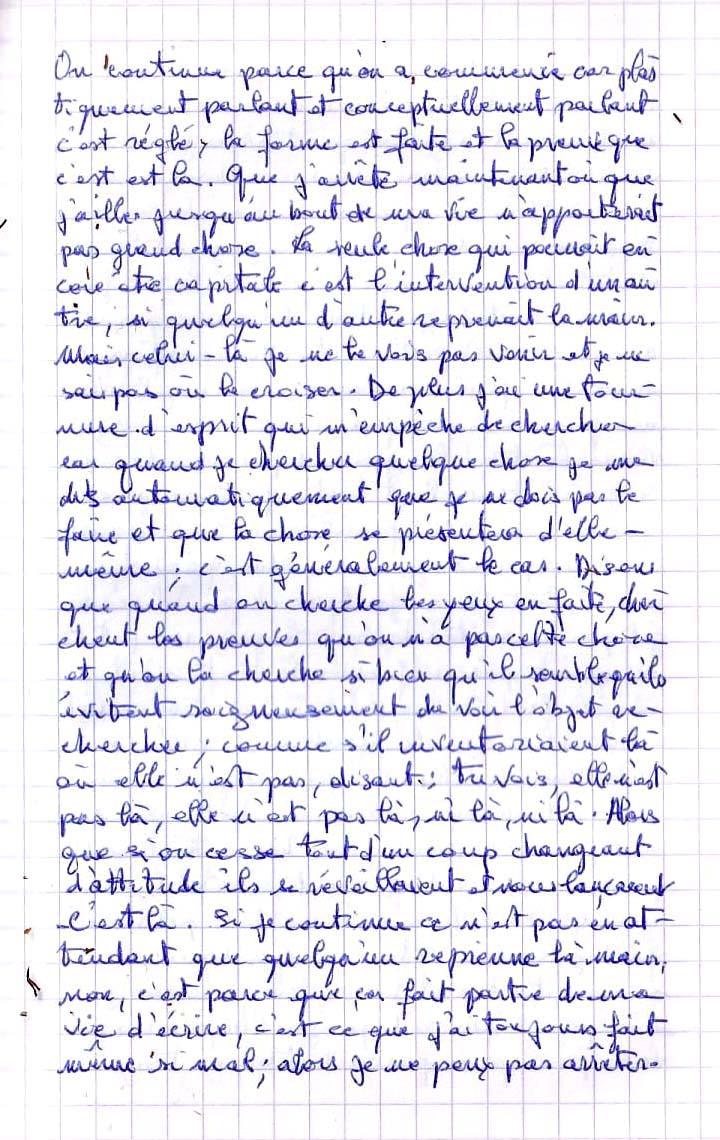 On continue parce qu'on a commencé car plas
tiquement parlant et conceptuellement parlant
c'est réglé, la forme est faite et la preuve que
c'est est là. Que j'arrête maintenant où que
j'aille jusqu'au bout de ma vie n'apporterait
pas grand chose. La seule chose qui pourrait en
core être capitale c'est l'intervention d'un au
tre, si quelqu'un d'autre reprenait la main.
Mais celui-là je ne le vois pas venir et je ne
sais pas où le croiser. De plus j'ai une tour-
nure d'esprit qui m'empêche de chercher
car quand je cherche quelque chose je me
dis automatiquement que je ne dois pas le
faire et que la chose se présentera d'elle-
même ; c'est généralement le cas. Disons
que quand on cherche les yeux en fait, cher
chent les preuves qu'on n'a pas cette chose
et qu'on la cherche si bien qu'il semble qu'ils
évitent soigneusement de voir l'objet re-
cherchée ; comme s'il inventoriaient là
où elle n'est pas, disant : tu vois, elle n'est
pas là, elle n'est pas là, ni là, ni là. Alors
que si on cesse tout d'un coup changeant
d'attitude ils se réveillaient et nous lançaient
-C'est là. Si je continue ce n'est pas en at-
tendant que quelqu'un reprenne la main,
non, c'est parce que ça fait partie de ma
vie d'écrire, c'est ce que j'ai toujours fait
même si mal ; alors je ne peux pas arrêter.